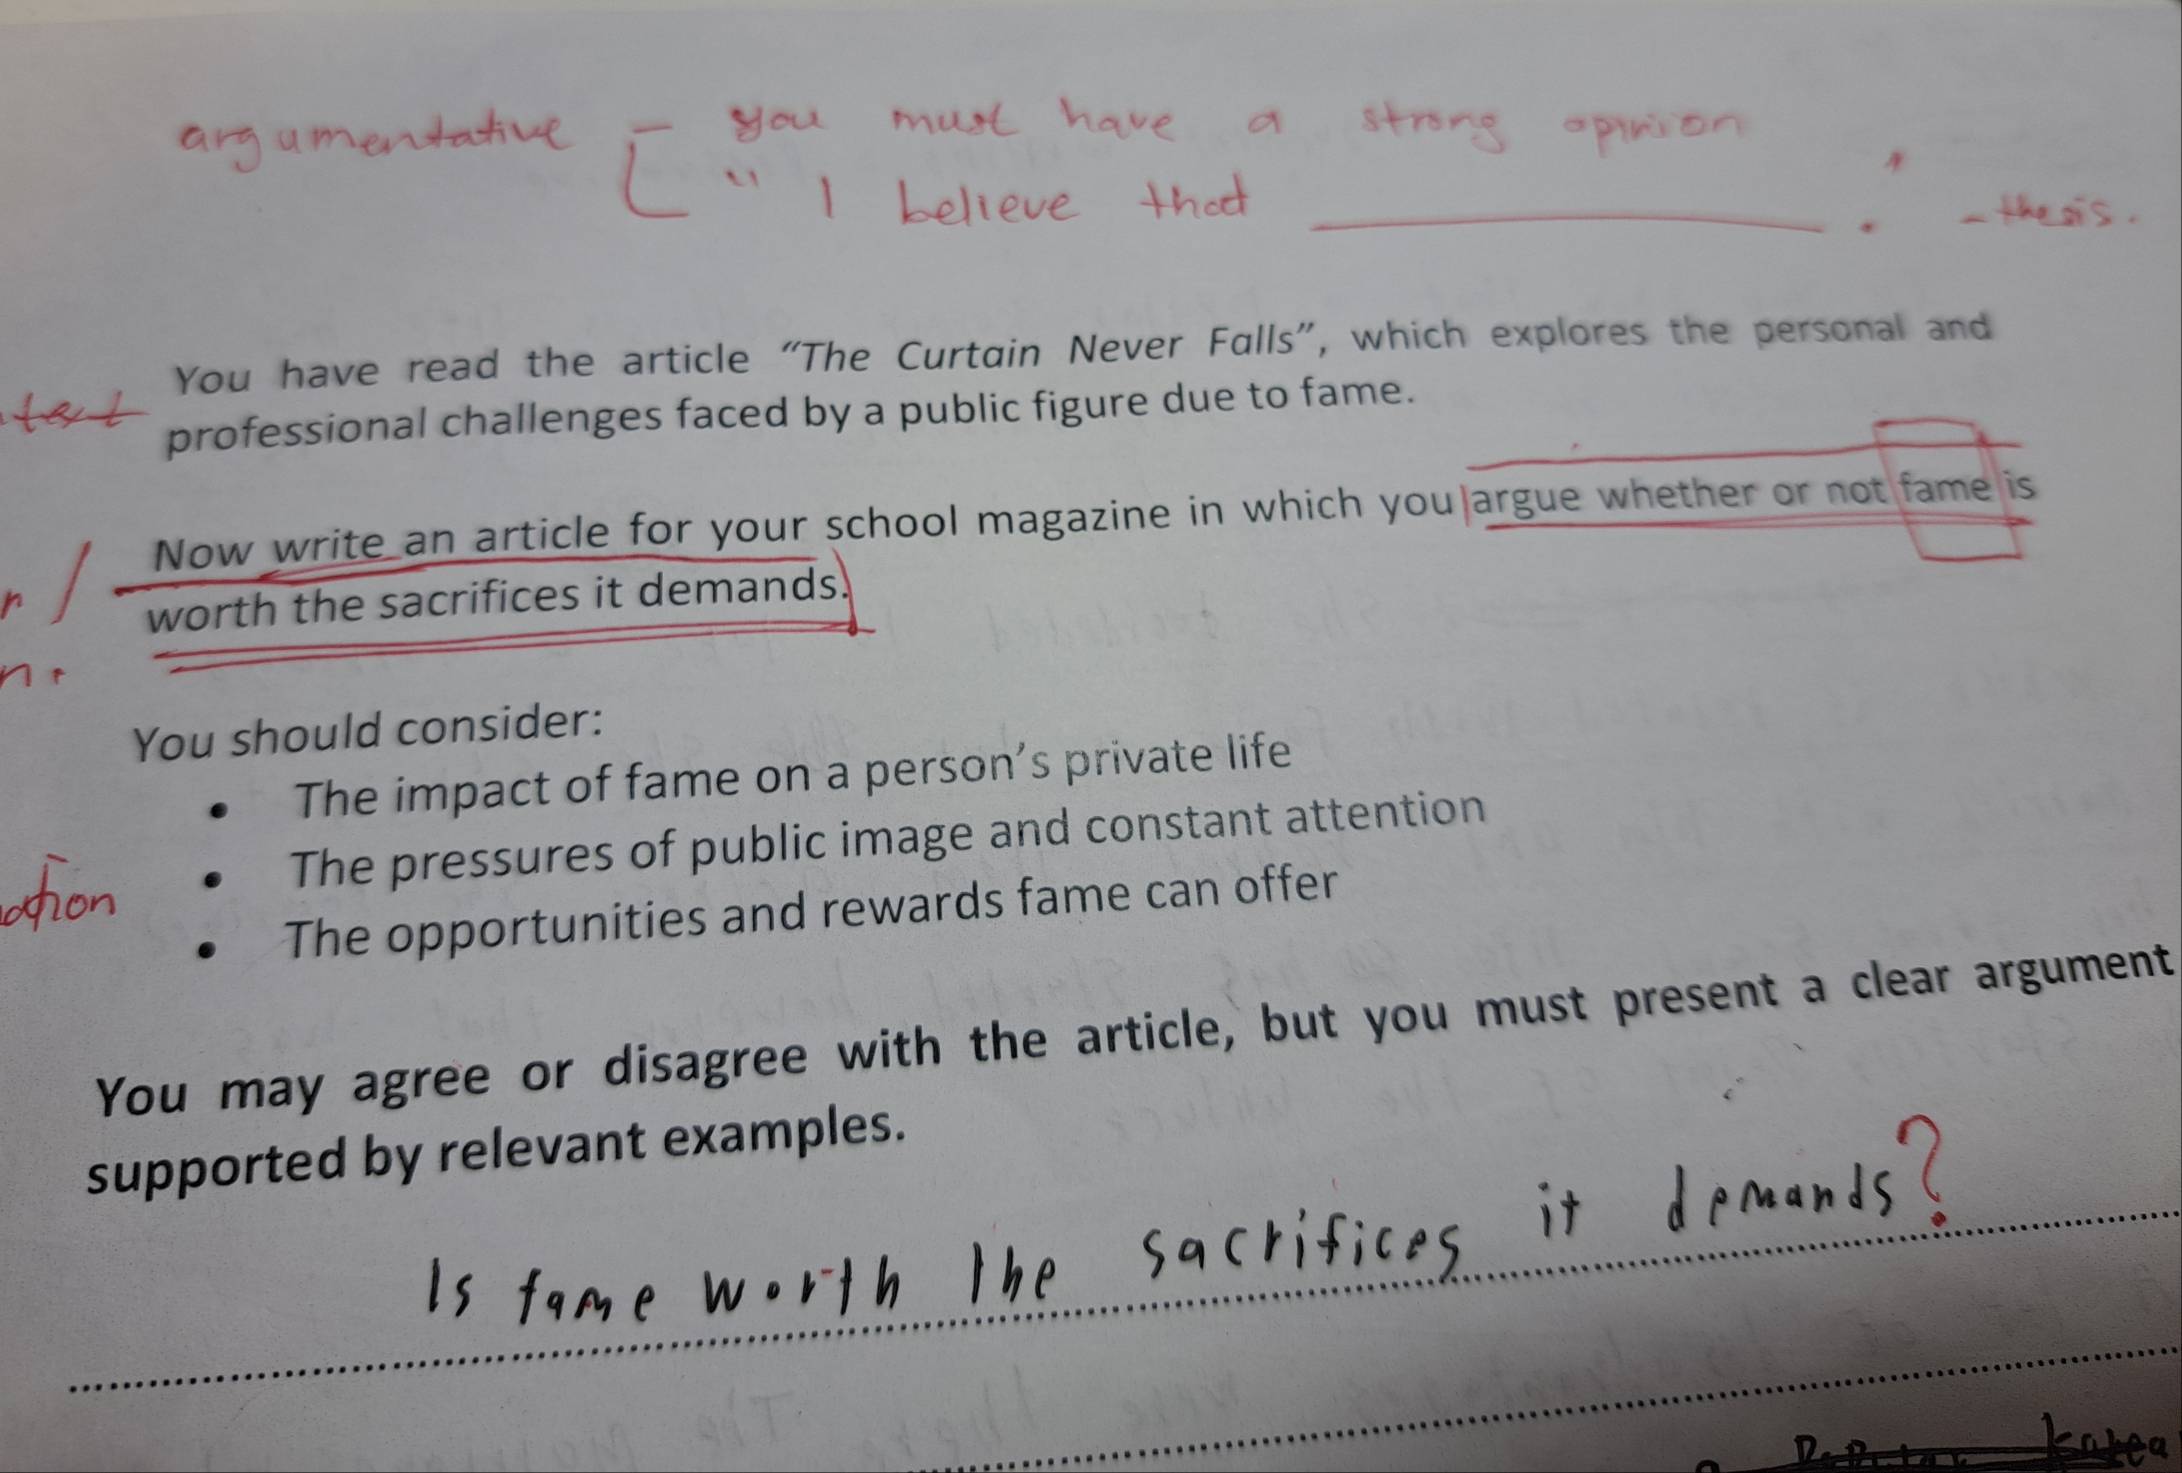 argumentative - you must have a strong opinion
" I believe that ________ . - thesis.
You have read the article “The Curtain Never Falls”, which explores the personal and
text professional challenges faced by a public figure due to fame.
Now write an article for your school magazine in which you argue whether or not fame is
worth the sacrifices it demands.
n.
You should consider:
• The impact of fame on a person’s private life
• The pressures of public image and constant attention
• The opportunities and rewards fame can offer
You may agree or disagree with the article, but you must present a clear argument
supported by relevant examples.
Is fame worth the sacrifices it demands?